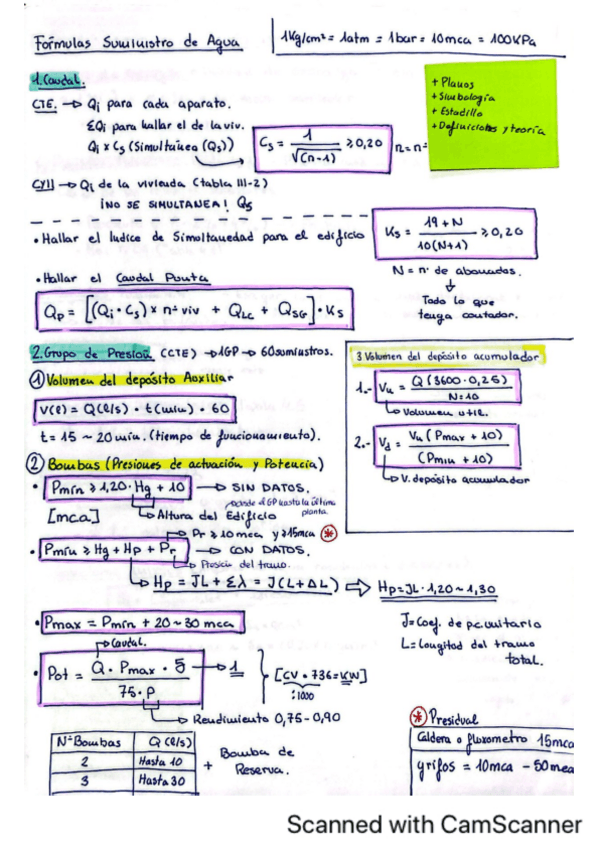 Fórmulas Suministro de Agua
1Kg/cm² = 1atm = 1bar = 10mca = 100KPa
1. Caudal.
CTE. → Qi para cada aparato.
ΣQi para hallar el de la viv.
Qi x Cs (Simultánea (Qs))
Cs = 1 / √(n-1) ≥ 0,20
n = nº
+ Planos
+ Simbología
+ Estadillo
+ Definiciones y teoría
CYII → Qi de la vivienda (tabla III-2)
¡NO SE SIMULTANEA! Qs
• Hallar el Indice de Simoltaneidad para el edificio
Ks = 19 + N / 10(N+1) ≥ 0,20
N = nº de abonados.
↓
Todo lo que
tenga contador.
• Hallar el Caudal Punta
Qp = [(Qi · Cs) x nº viv + QLC + QSG] · Ks
2. Grupo de Presión (CTE) → 1GP → 60sumiustros.
① Volumen del depósito Auxiliar
V(l) = Q(l/s) · t(min) · 60
t = 15 ~ 20 min. (tiempo de funcionamiento).
3 Volumen del depósito acumulador
1.- Vu = Q (3600 · 0,25) / N=10
Volumen util.
2.- Vd = Vu (Pmax + 10) / (Pmin + 10)
V. depósito acumulador
② Bombas (Presiones de actuación y Potencia)
• Pmín ≥ 1,20 · Hg + 10 → SIN DATOS.
desde el GP hasta la última planta.
[mca]
Altura del Edificio
Pr ≥ 10mca y ≥ 15mca *
• Pmín ≥ Hg + Hp + Pr → CON DATOS.
Presión del tramo.
Hp = JL + Σλ = J(L + ΔL) ⇒ Hp = JL · 1,20 ~ 1,30
J = Coef. de
L = Longitud del tramo
total.
• Pmax = Pmín + 20 ~ 30 mca
Caudal.
• Pot = Q · Pmax · 5 / 75 · ρ → 1
[CV · 736 = KW]
: 1000
Rendimiento 0,75 - 0,90
Nº Bombas Q (l/s)
2 Hasta 10
3 Hasta 30
+ Bomba de
Reserva.
* Presidual
Caldera o fluxometro 15mca
grifos = 10mca - 50mca
Scanned with CamScanner